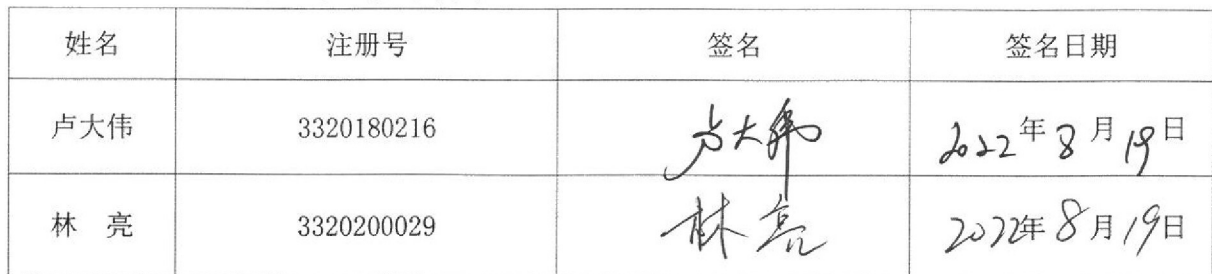 姓名 注册号 签名 签名日期
卢大伟 3320180216 卢大伟 2022年8月19日
林 亮 3320200029 林亮 2022年8月19日